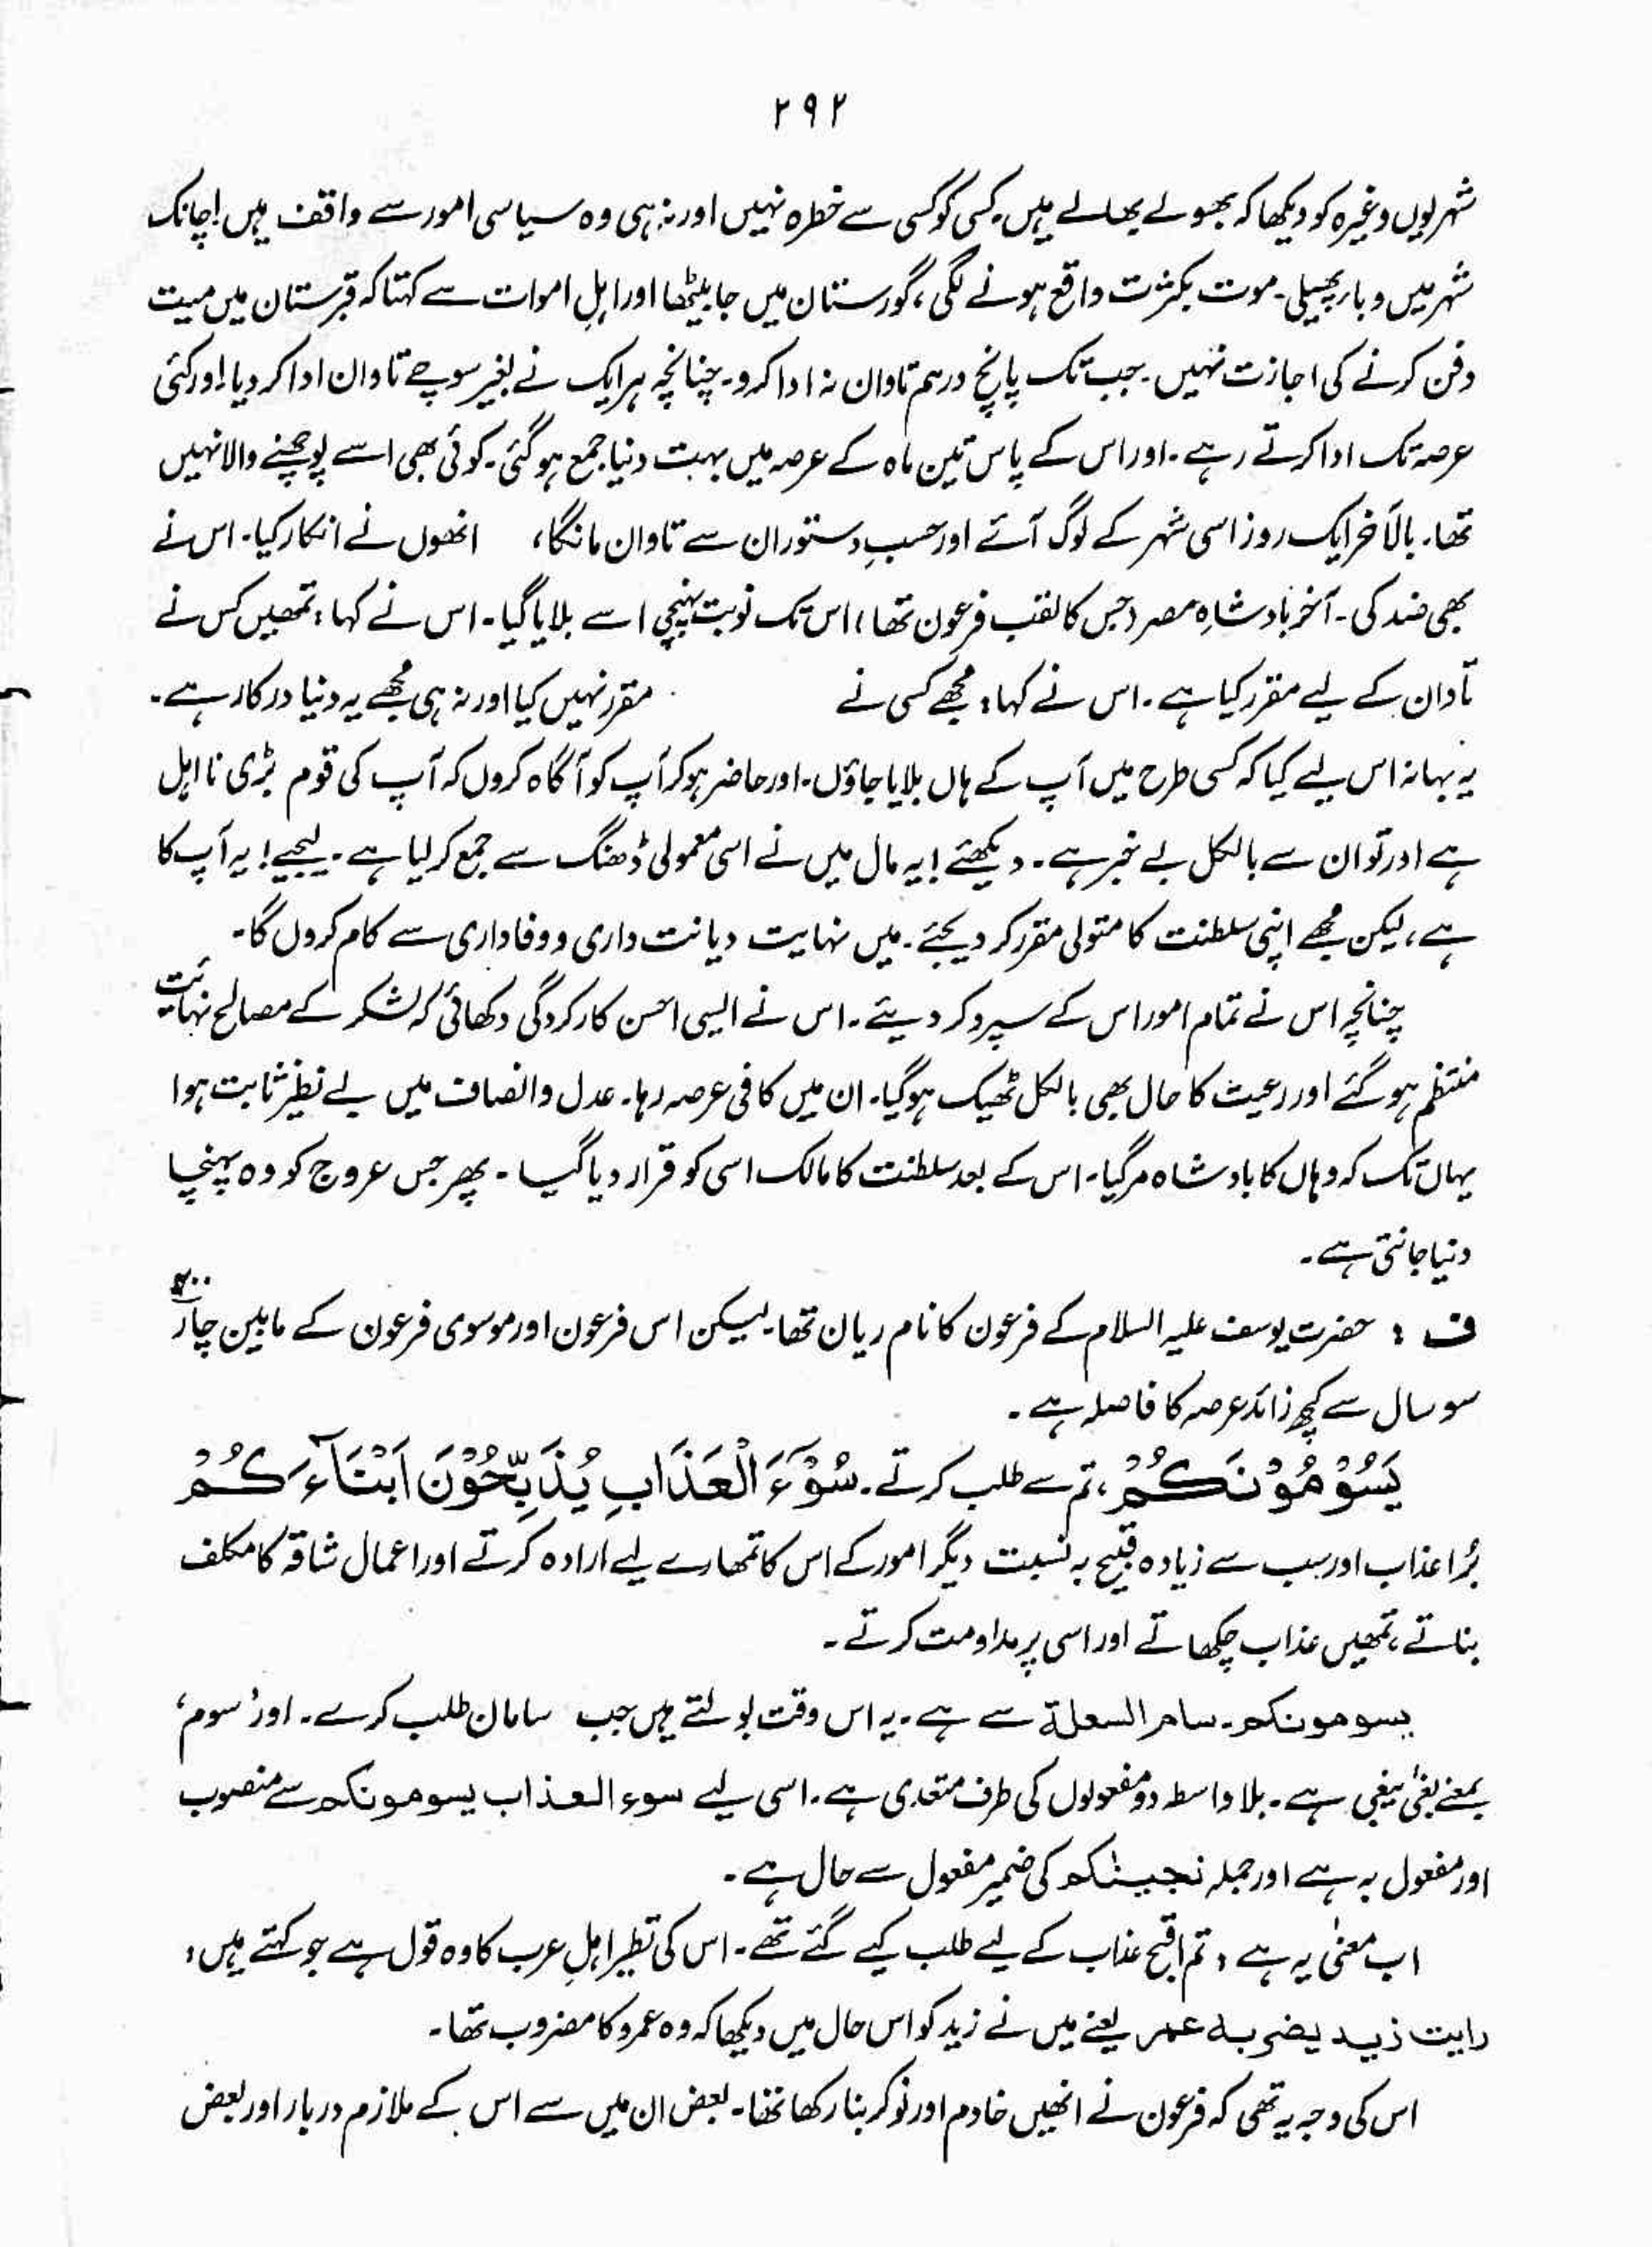 ۲۹۲
شہریوں وغیرہ کو دیکھا کہ بھولے بھالے ہیں۔ کسی کو کسی سے خطرہ نہیں اور نہ ہی وہ سیاسی امور سے واقف ہیں۔ اچانک
شہر میں وبار پھیلی۔ موت بکثرت واقع ہونے لگی، گورستان میں جا بیٹھا اور اہلِ اموات سے کہتا کہ قبرستان میں میت
دفن کرنے کی اجازت نہیں۔ جب تک پانچ درہم تاوان نہ ادا کرو۔ چنانچہ ہر ایک نے بغیر سوچے تاوان ادا کر دیا۔ اور کئی
عرصہ تک ادا کرتے رہے۔ اور اس کے پاس تین ماہ کے عرصہ میں بہت دنیا جمع ہو گئی۔ کوئی بھی اسے پوچھنے والا نہیں
تھا۔ بالآخر ایک روز اسی شہر کے لوگ آئے اور حسبِ دستور ان سے تاوان مانگا، انھوں نے انکار کیا۔ اس نے
بھی ضد کی۔ آخر بادشاہِ مصر (جس کا لقب فرعون تھا) اس تک نوبت پہنچی اسے بلایا گیا۔ اس نے کہا: تمھیں کس نے
تاوان کے لیے مقرر کیا ہے۔ اس نے کہا: مجھے کسی نے مقرر نہیں کیا اور نہ ہی مجھے یہ دنیا درکار ہے۔
یہ بہانہ اس لیے کیا کہ کسی طرح میں آپ کے ہاں بلایا جاؤں۔ اور حاضر ہو کر آپ کو آگاہ کروں کہ آپ کی قوم بڑی نا اہل
ہے اور تو ان سے بالکل بے خبر ہے۔ دیکھئے! یہ مال میں نے اسی معمولی ڈھنگ سے جمع کر لیا ہے۔ لیجیے! یہ آپ کا
ہے، لیکن مجھے اپنی سلطنت کا متولی مقرر کر دیجئے۔ میں نہایت دیانت داری و وفاداری سے کام کروں گا۔
چنانچہ اس نے تمام امور اس کے سپرد کر دیئے۔ اس نے ایسی احسن کارکردگی دکھائی کہ لشکر کے مصالح نہایت
منتظم ہو گئے اور رعیت کا حال بھی بالکل ٹھیک ہو گیا۔ ان میں کافی عرصہ رہا۔ عدل و انصاف میں بے نظیر ثابت ہوا
یہاں تک کہ وہاں کا بادشاہ مر گیا۔ اس کے بعد سلطنت کا مالک اسی کو قرار دیا گیا۔ پھر جس عروج کو وہ پہنچا
دنیا جانتی ہے۔
ف : حضرت یوسف علیہ السلام کے فرعون کا نام ریان تھا۔ لیکن اس فرعون اور موسوی فرعون کے مابین چار ۴۰۰
سو سال سے کچھ زائد عرصہ کا فاصلہ ہے۔
یَسُوْمُوْنَكُمْ، تم سے طلب کرتے۔ سُوْٓءَ الْعَذَابِ یُذَبِّحُوْنَ اَبْنَآءَكُمْ
بُرا عذاب اور سب سے زیادہ قبیح بہ نسبت دیگر امور کے اس کا تمھارے لیے ارادہ کرتے اور اعمال شاقہ کا مکلف
بناتے، تمھیں عذاب چکھاتے اور اسی پر مداومت کرتے۔
یسومونکم۔ سام السعلة سے ہے۔ یہ اس وقت بولتے ہیں جب سامان طلب کرے۔ اور ’سوم‘
بمعنے بغیٰ یبغی ہے۔ بلا واسطہ دو مفعولوں کی طرف متعدی ہے۔ اسی لیے سوء العذاب یسومونکم سے منصوب
اور مفعول بہ ہے اور جملہ نجینٰکم کی ضمیر مفعول سے حال ہے۔
اب معنیٰ یہ ہے : تم اقبح عذاب کے لیے طلب کیے گئے تھے۔ اس کی نظیر اہلِ عرب کا وہ قول ہے جو کہتے ہیں :
رایت زید یضربہ عمر یعنے میں نے زید کو اس حال میں دیکھا کہ وہ عمرو کا مضروب تھا۔
اس کی وجہ یہ تھی کہ فرعون نے انھیں خادم اور نوکر بنا رکھا تھا۔ بعض ان میں سے اس کے ملازم دربار اور بعض